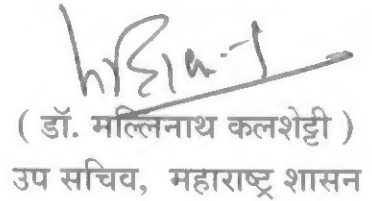 ( डॉ. मल्लिनाथ कलशेट्टी )
उप सचिव, महाराष्ट्र शासन